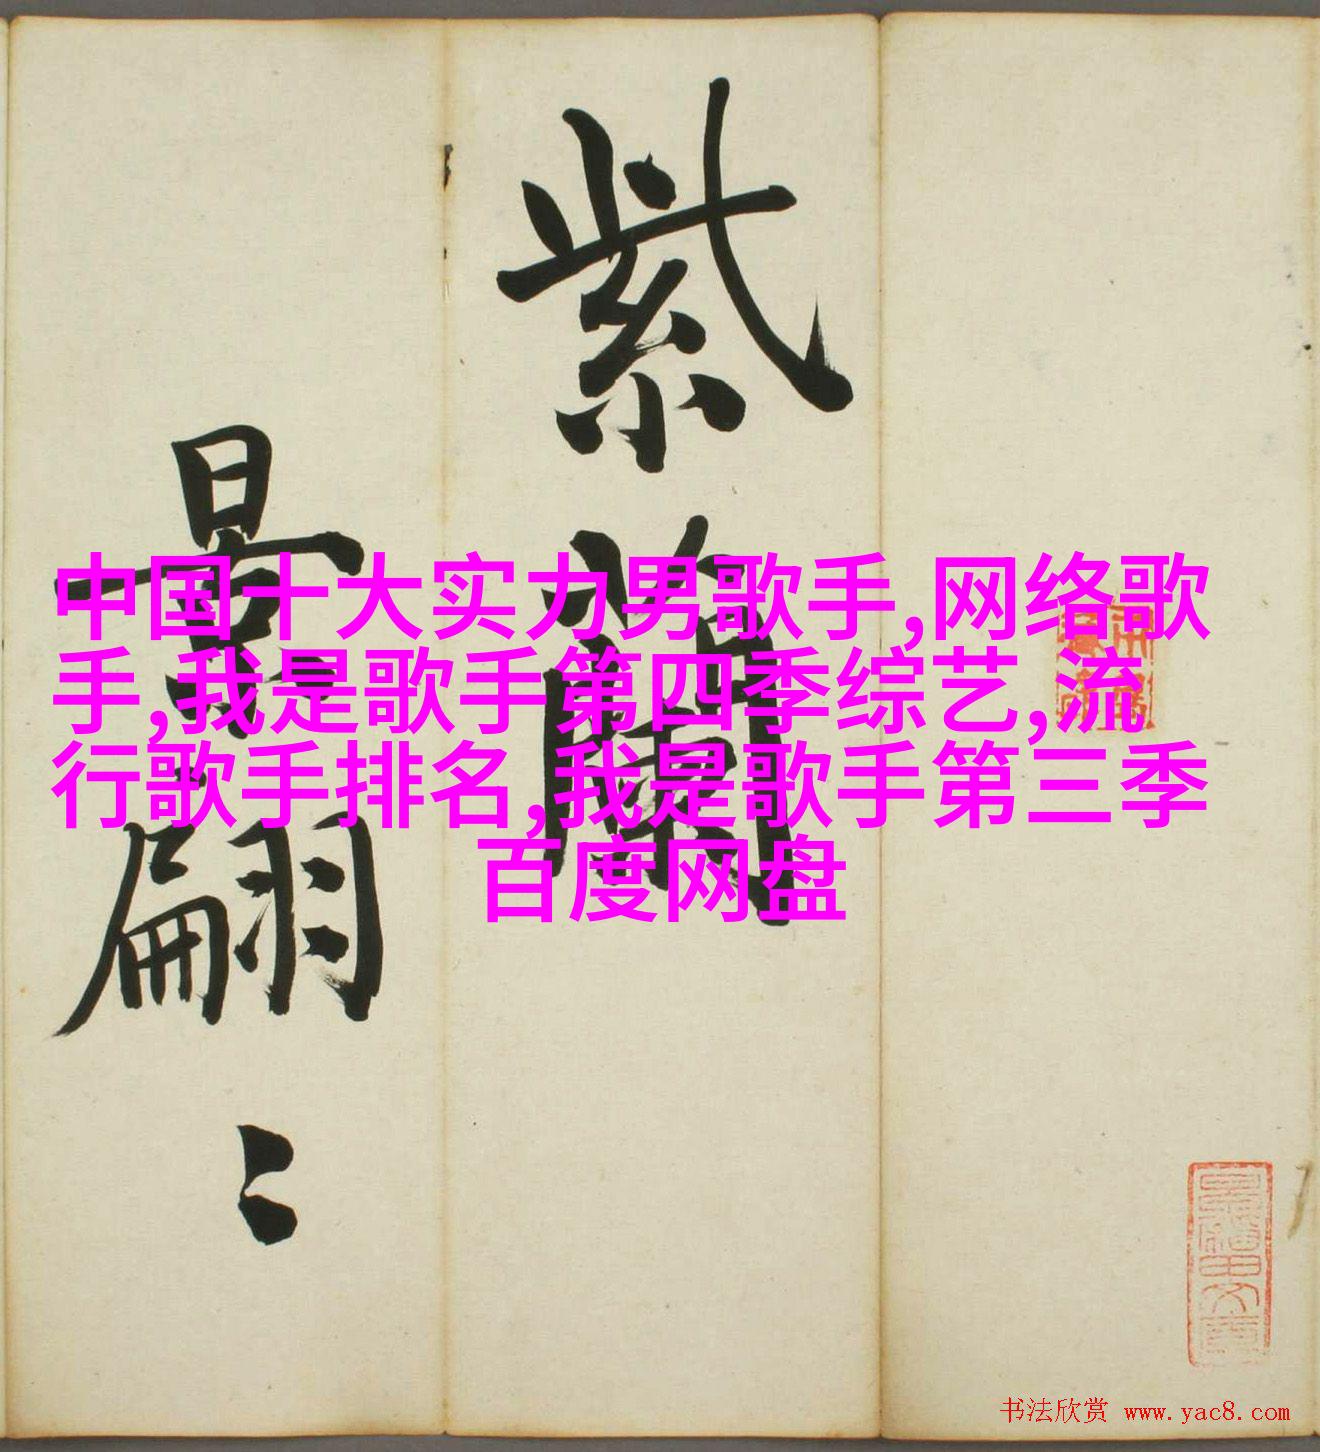 紫蘭
景翩〻
中国十大实力男歌手,网络歌
手,我是歌手第四季综艺,流
行歌手排名,我是歌手第三季
百度网盘
书法欣赏 www.yac8.com